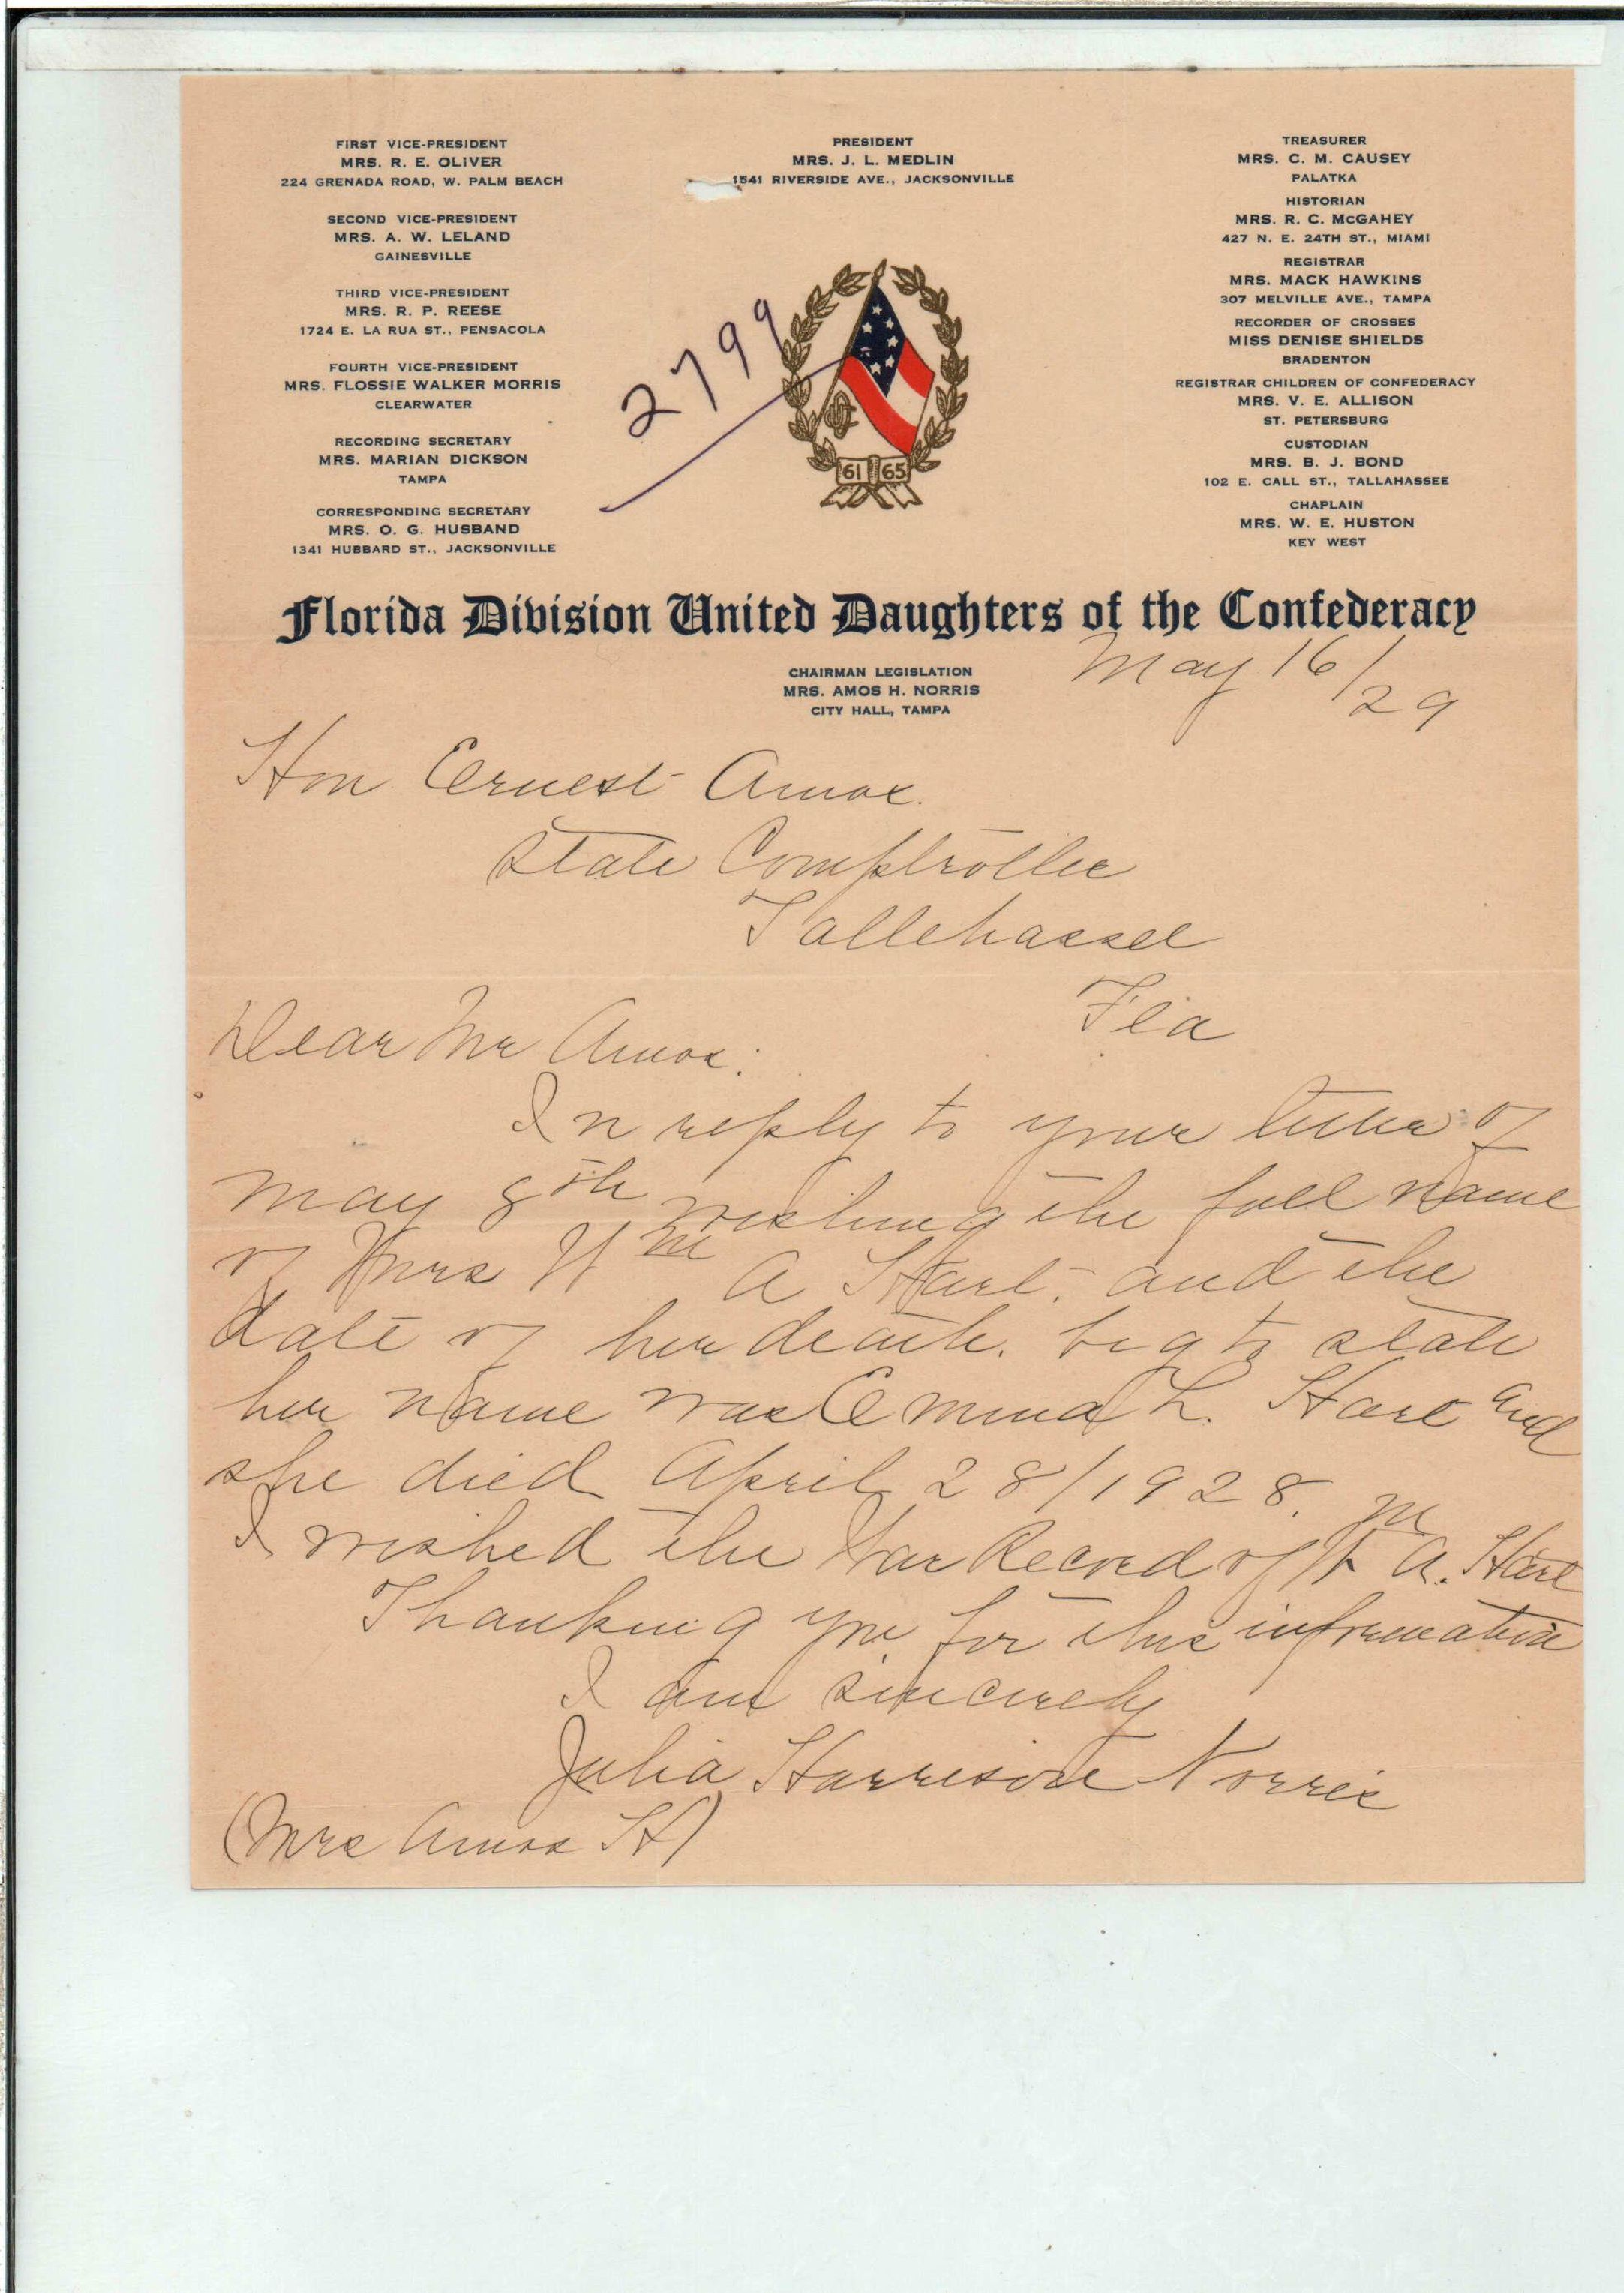 FIRST VICE-PRESIDENT
MRS. R. E. OLIVER
224 GRENADA ROAD, W. PALM BEACH
SECOND VICE-PRESIDENT
MRS. A. W. LELAND
GAINESVILLE
THIRD VICE-PRESIDENT
MRS. R. P. REESE
1724 E. LA RUA ST., PENSACOLA
FOURTH VICE-PRESIDENT
MRS. FLOSSIE WALKER MORRIS
CLEARWATER
RECORDING SECRETARY
MRS. MARIAN DICKSON
TAMPA
CORRESPONDING SECRETARY
MRS. O. G. HUSBAND
1341 HUBBARD ST., JACKSONVILLE
PRESIDENT
MRS. J. L. MEDLIN
1541 RIVERSIDE AVE., JACKSONVILLE
2799
61 65
TREASURER
MRS. C. M. CAUSEY
PALATKA
HISTORIAN
MRS. R. C. McGAHEY
427 N. E. 24TH ST., MIAMI
REGISTRAR
MRS. MACK HAWKINS
307 MELVILLE AVE., TAMPA
RECORDER OF CROSSES
MISS DENISE SHIELDS
BRADENTON
REGISTRAR CHILDREN OF CONFEDERACY
MRS. V. E. ALLISON
ST. PETERSBURG
CUSTODIAN
MRS. B. J. BOND
102 E. CALL ST., TALLAHASSEE
CHAPLAIN
MRS. W. E. HUSTON
KEY WEST
Florida Division United Daughters of the Confederacy
CHAIRMAN LEGISLATION
MRS. AMOS H. NORRIS
CITY HALL, TAMPA
May 16/29
Hon Ernest Amos.
State Comptroller
Tallehassee
Fla
Dear Mr Amos:
In reply to your letter of
May 8th wishing the full name
of Mrs Wm A Hart. and the
date of her death. beg to state
her name was Emma L. Hart and
she died April 28/1928.
I wished the War Record of Wm A. Hart
Thanking you for this information
I am sincerely
Julia Harrison Norris
(Mrs Amos H)